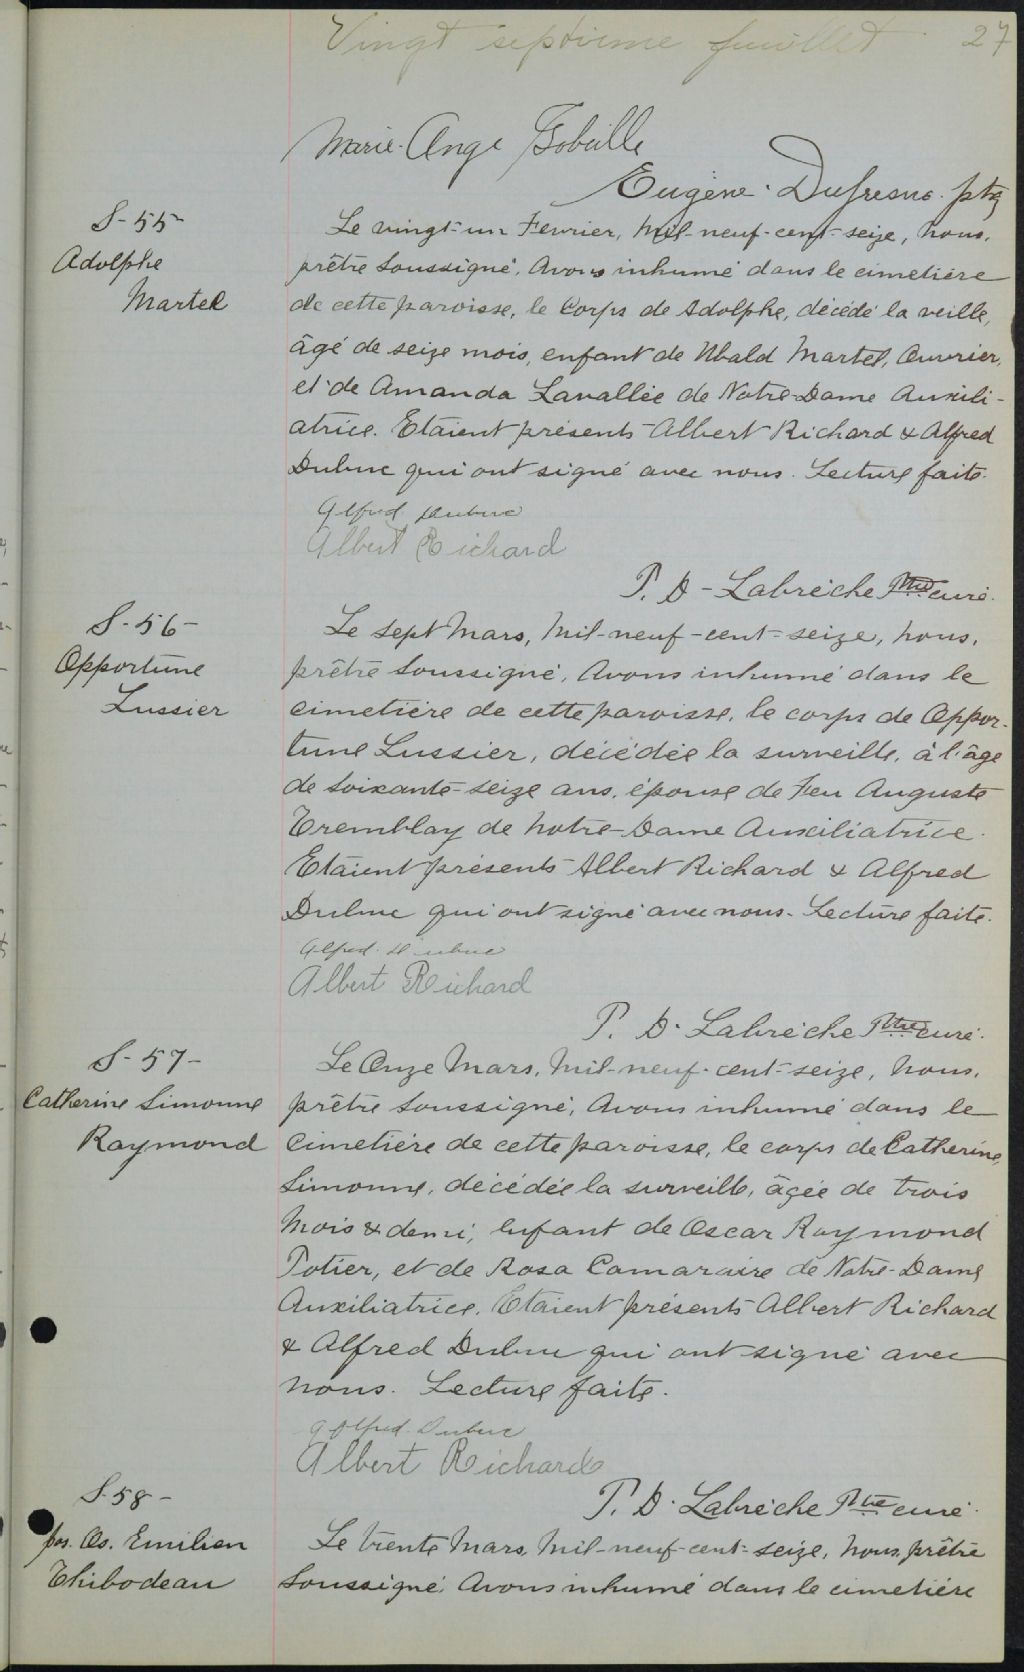 Vingt septième feuillet 27
Marie-Ange Gobeille
Eugène Dufresne ptre
S-55
Adolphe
Martel
Le vingt-un Fevrier, Mil-neuf-cent-seize, nous,
prêtre soussigné, Avons inhumé dans le cimetière
de cette paroisse, le Corps de Adolphe, décédé la veille,
âgé de seize mois, enfant de Ubald Martel, Ouvrier,
et de Amanda Lavallée de Notre-Dame Auxili-
atrice. Etaient présents Albert Richard & Alfred
Dubuc qui ont signé avec nous. Lecture faite.
Alfred Dubuc
Albert Richard
P. D-Labrèche Ptre curé.
S-56-
Opportune
Lussier
Le sept Mars, Mil-neuf-cent-seize, nous,
prêtre soussigné, Avons inhumé dans le
Cimetière de cette paroisse, le corps de Oppor-
tune Lussier, décédée la surveille, à l'âge
de soixante-seize ans, épouse de Feu Auguste
Tremblay de Notre-Dame Auxiliatrice.
Etaient présents Albert Richard & Alfred
Dubuc qui ont signé avec nous. Lecture faite.
Alfred Dubuc
Albert Richard
P. D. Labrèche Ptre curé.
S-57-
Catherine Simonne
Raymond
Le Onze Mars, Mil-neuf-cent-seize, nous,
prêtre soussigné, Avons inhumé dans le
Cimetière de cette paroisse, le corps de Catherine
Simonne, décédée la surveille, âgée de trois
Mois & demi, Enfant de Oscar Raymond
Potier, et de Rosa Camaraire de Notre-Dame
Auxiliatrice. Etaient présents Albert Richard
& Alfred Dubuc qui ont signé avec
nous. Lecture faite.
Alfred Dubuc
Albert Richard
P. D. Labrèche Ptre curé.
S-58-
Jos. Os. Emilien
Thibodeau
Le trente Mars, Mil-neuf-cent-seize, Nous, prêtre
soussigné, Avons inhumé dans le cimetière